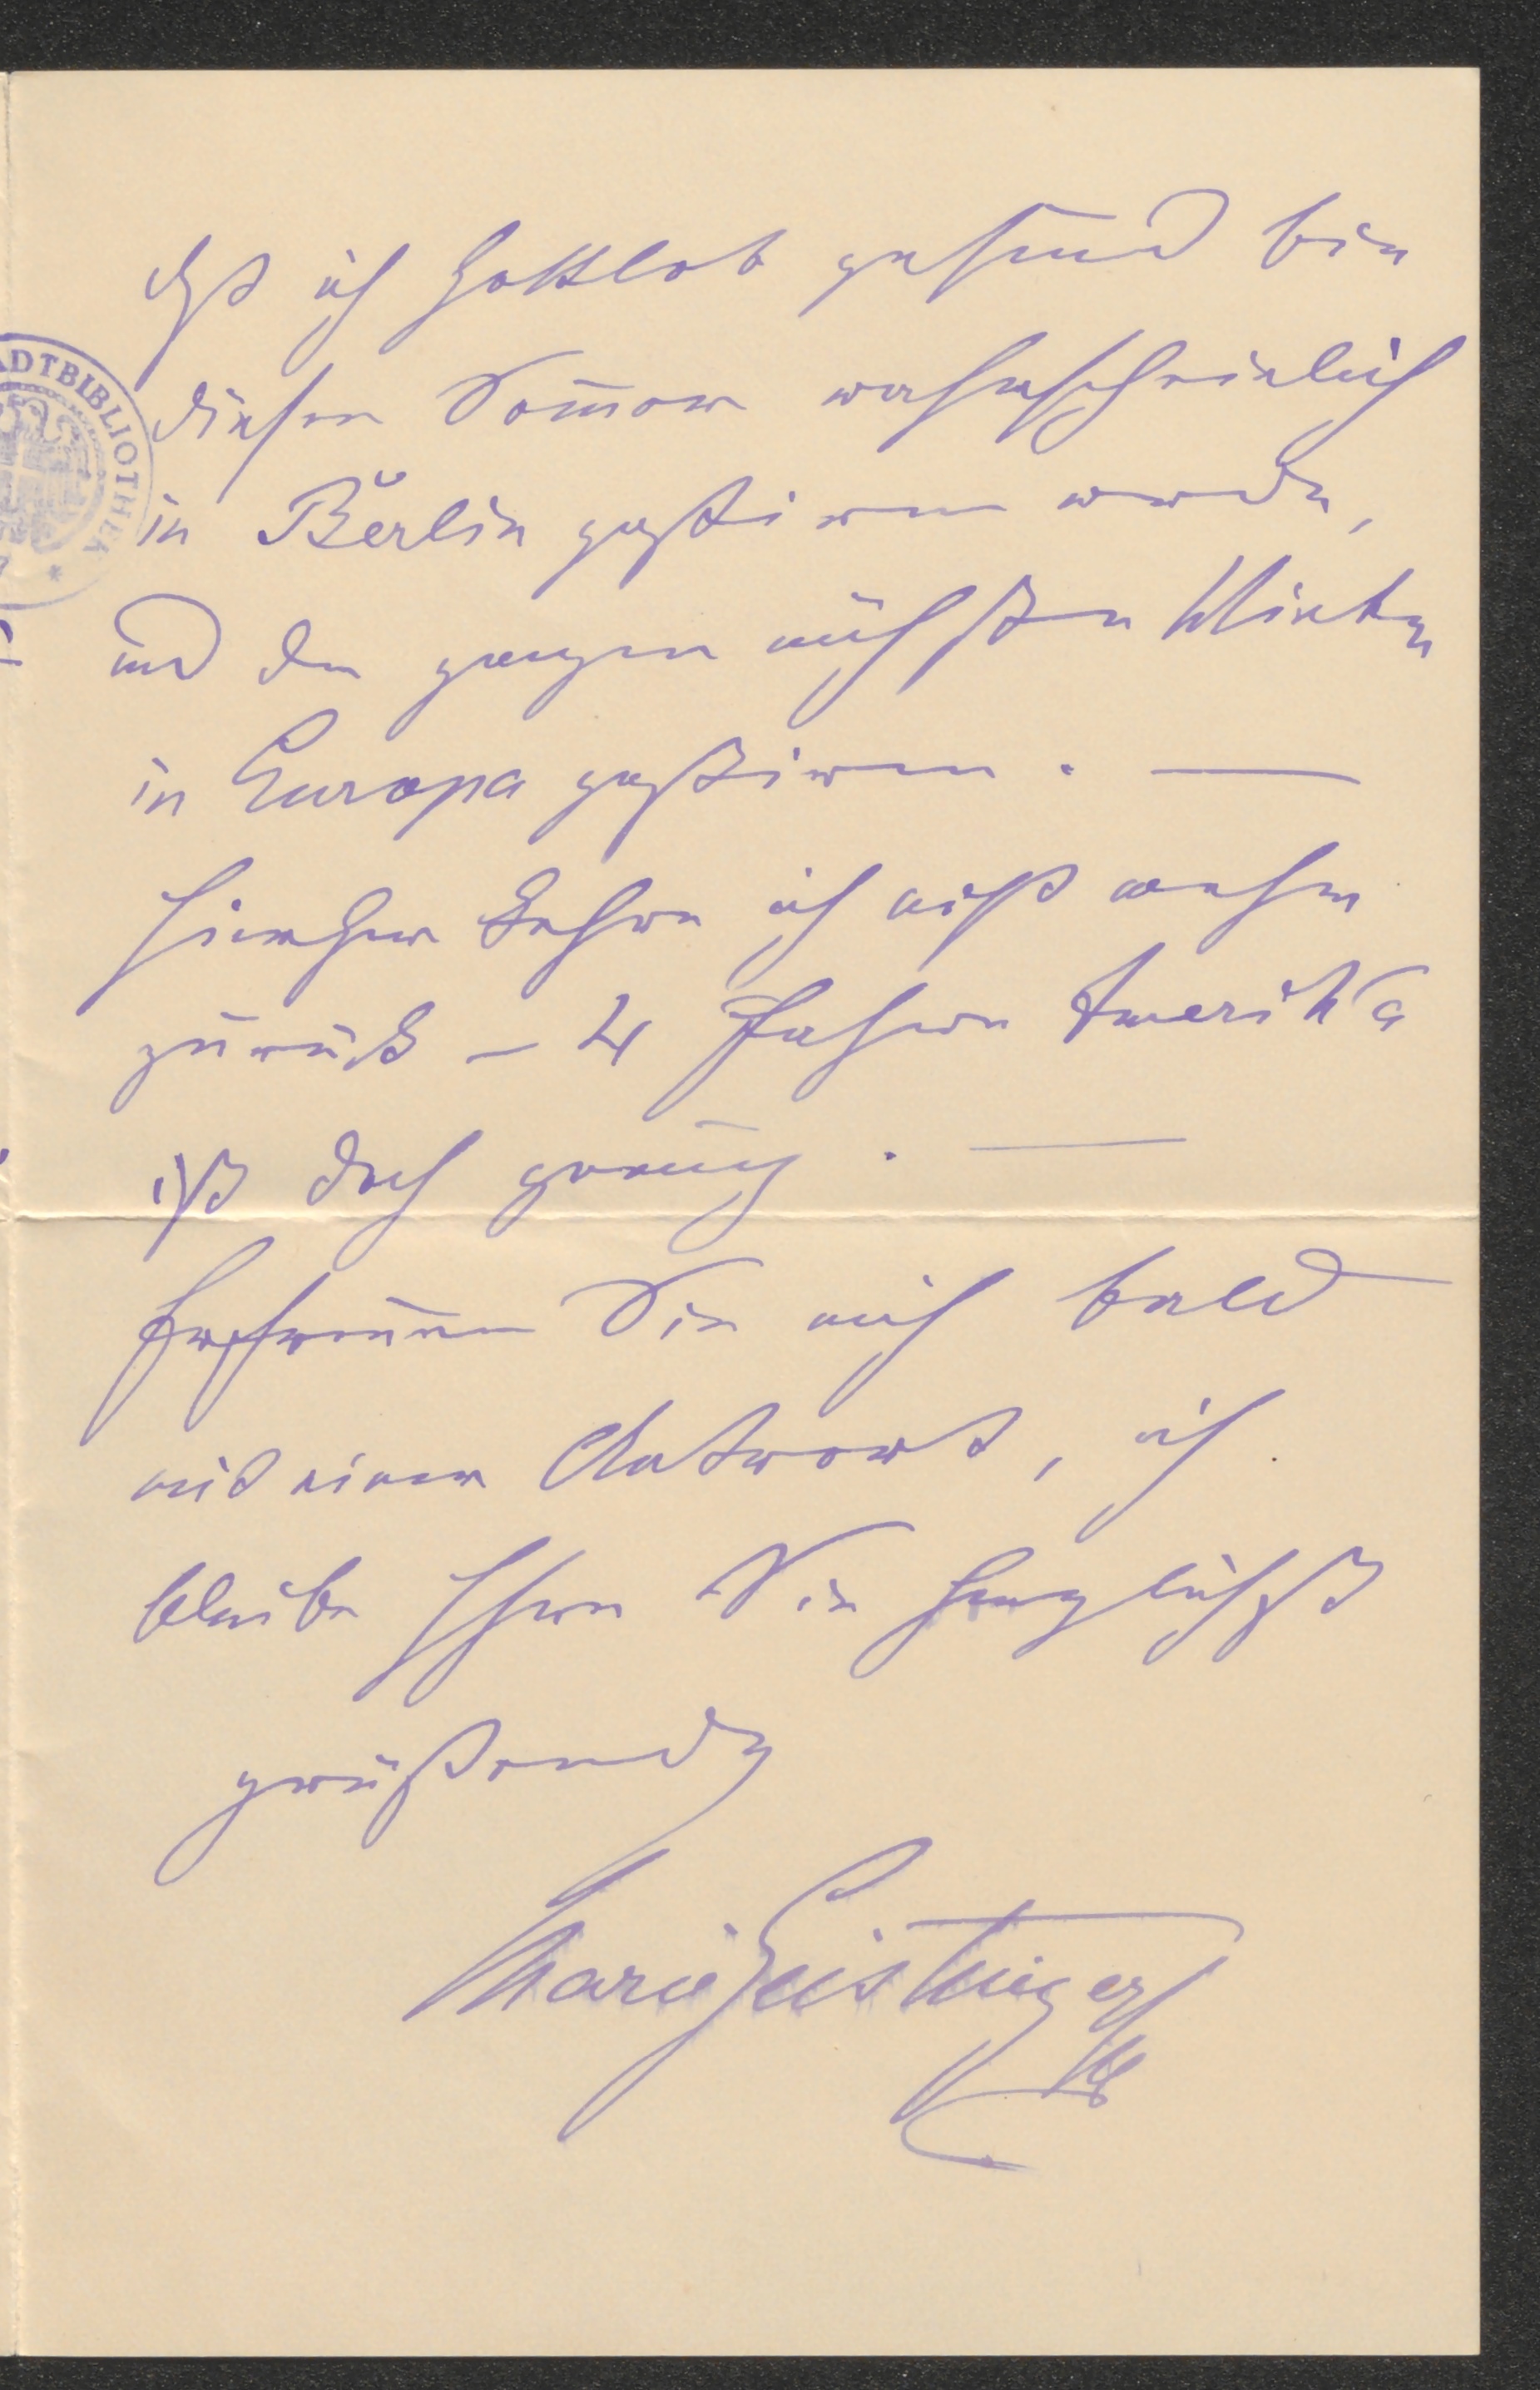 daß ich Gottlob gesund bin
diesen Som̄er wahrscheinlich
in Berlin gastiren werde,
und den ganzen nächsten Winter
in Europa gastiren. —
Hierher kehre ich nicht mehr
zurück – 4 Jahre Amerika
ist doch genug. —
Erfreuen Sie mich bald
mit einer Antwort, ich
bleibe Ihre Sie herzlichst
grüßende
Marie Geistinger
ADTBIBLIOTHEK *